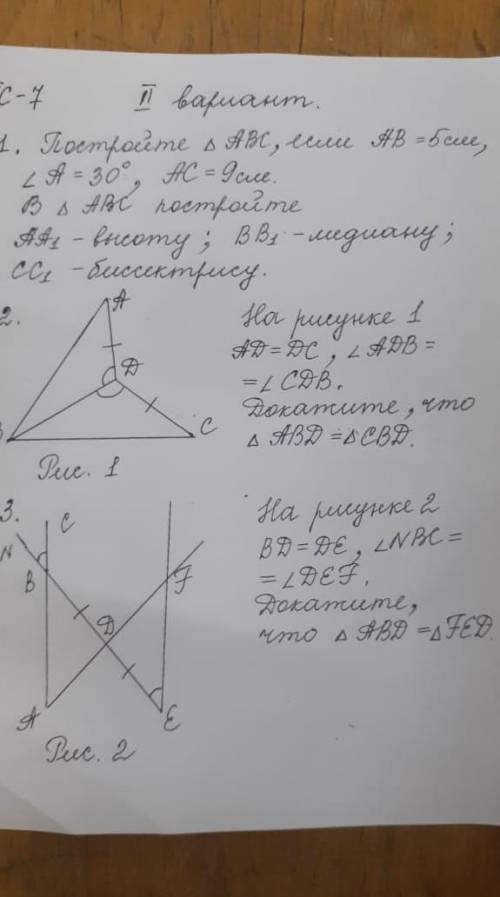 С-7 II вариант.
1. Постройте △ ABC, если AB = 5см,
∠ A = 30°, AC = 9см.
В △ ABC постройте
AA₁ - высоту; BB₁ - медиану;
CC₁ - биссектрису.
2.
A
D
B
C
Рис. 1
На рисунке 1
AD = DC, ∠ ADB =
= ∠ CDB.
Докажите, что
△ ABD = △ CBD.
3.
C
N
B
F
D
A
E
Рис. 2
На рисунке 2
BD = DE, ∠NBC =
= ∠ DEF.
Докажите,
что △ ABD = △ FED.